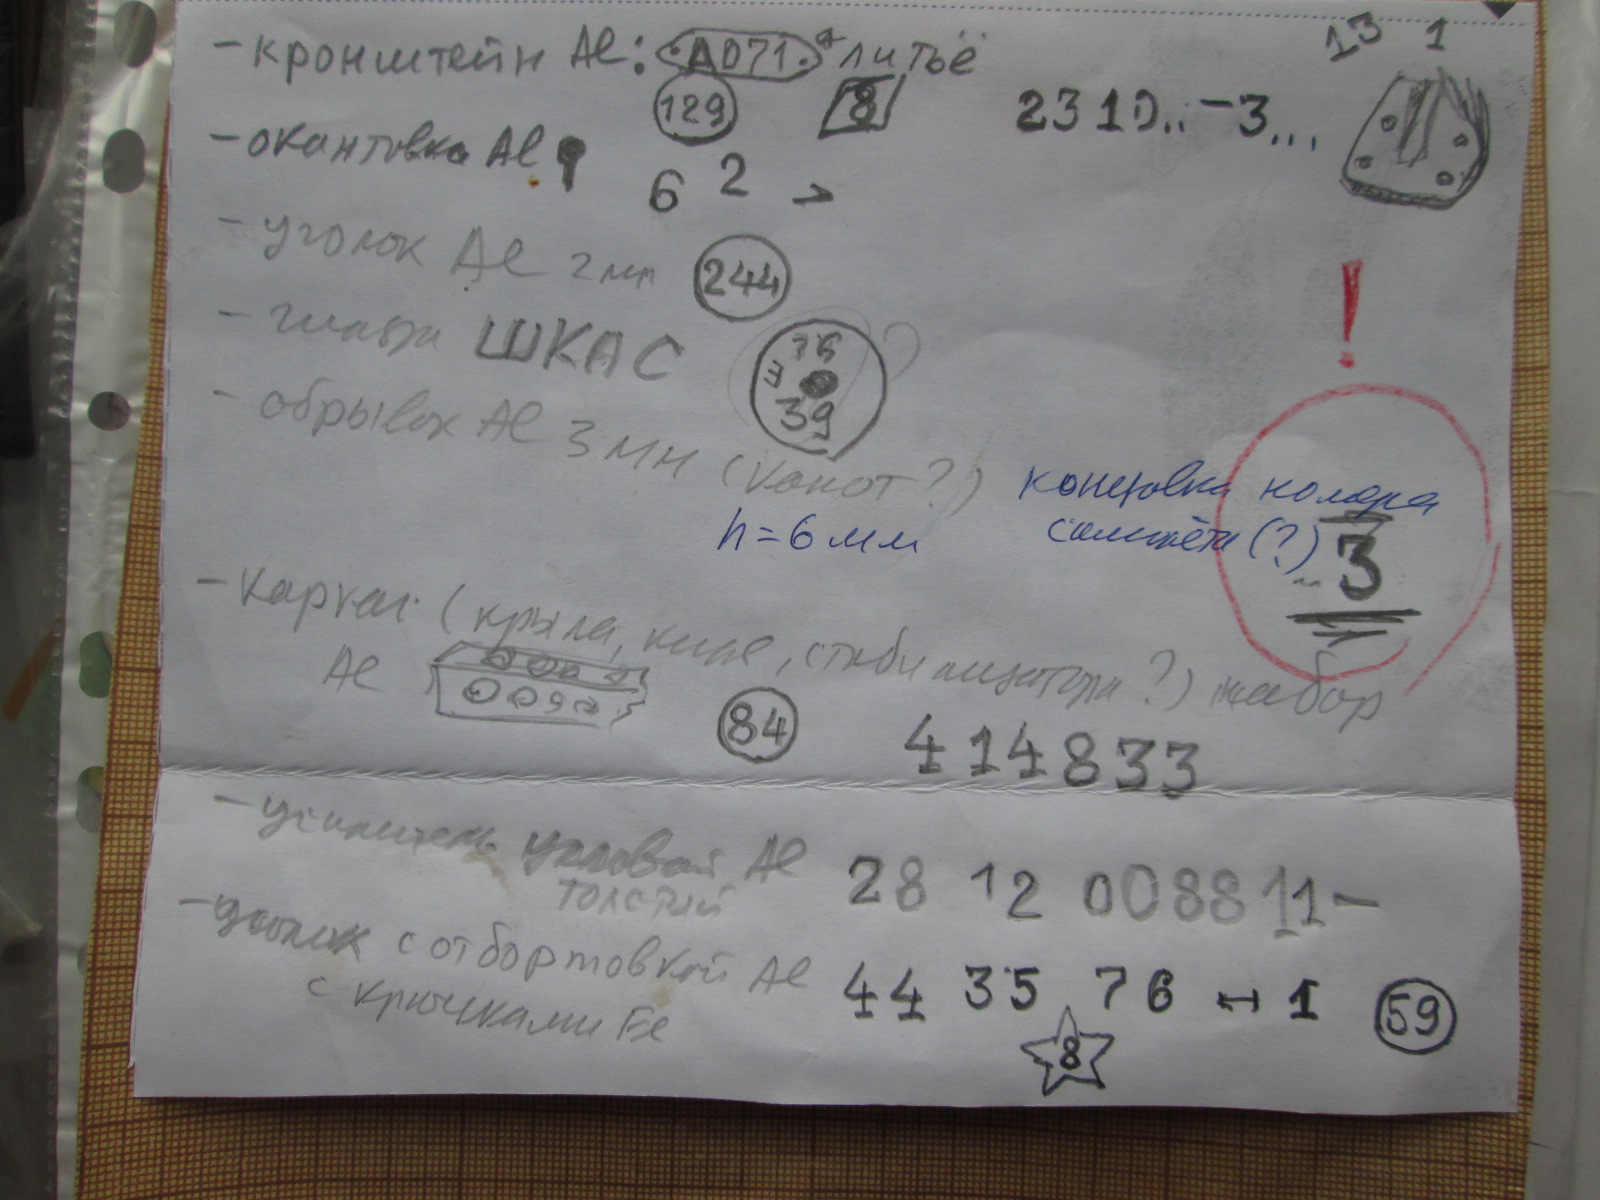 - кронштейн Al: А071. литьё
13 1
129 8 2310.. -3...
- окантовка Al
6 2 >
- уголок Al 2мм 244
!
- гильза ШКАС 76
39
- обрывок Al 3мм (капот?)
h=6мм
концовка номера
самолёта (?) 3
- каркас (крыла, киля, стабилизатора?) набор
Al
84 414833
- усилитель угловой Al 28 12 008811-
толстый
- уголок с отбортовкой Al 44 35 76 1 59
с крючками Fe
8